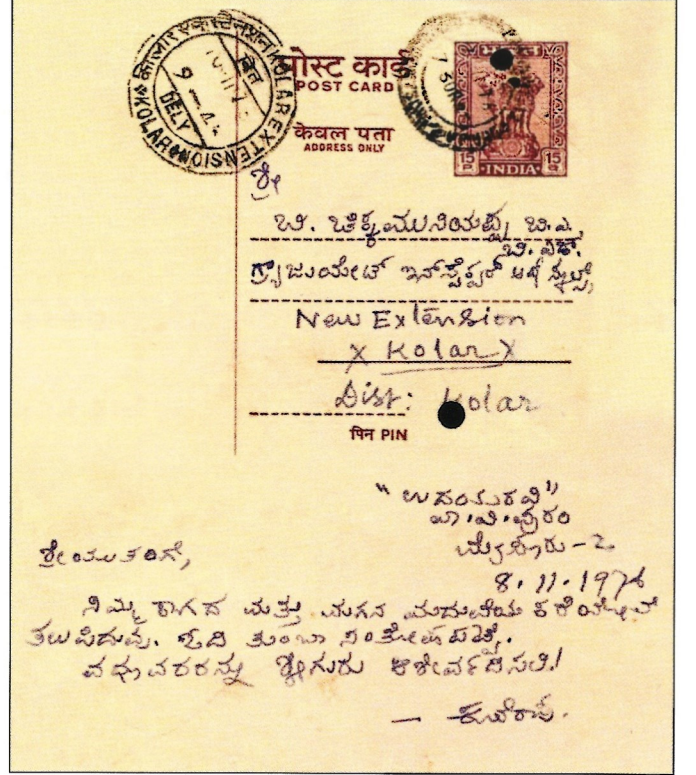 कोलार एक्स्टेनशन KOLAR EXTENSION
DELY
KOLAR
पोस्ट कार्ड
POST CARD
भारत
केवल पता
ADDRESS ONLY
15 15
INDIA
ಶ್ರೀ
ಬಿ. ಚಿಕ್ಕಮುನಿಯಪ್ಪ ಬಿ.ಎ.,
ಬಿ.ಎಡ್.
ಗ್ರ್ಯಾಜುಯೇಟ್ ಇನ್‌ಸ್ಪೆಕ್ಟರ್ ಆಫ್ ಸ್ಕೂಲ್ಸ್,
New Extension
X Kolar X
Dist: Kolar
पिन PIN
"ಉದಯರವಿ"
ವಾ.ವಿ.ಪುರಂ
ಮೈಸೂರು-2
8.11.197
ಶ್ರೀಯುತರಿಗೆ,
ನಿಮ್ಮ ಕಾಗದ ಮತ್ತು ಮಗನ ಮದುವೆಯ ಕರೆಯೋಲೆ
ತಲುಪಿದುವು. ಓದಿ ತುಂಬಾ ಸಂತೋಷಪಟ್ಟೆ.
ವಧೂವರರನ್ನು ಶ್ರೀಗುರು ಆಶೀರ್ವದಿಸಲಿ!
— ಕುವೆಂಪು.